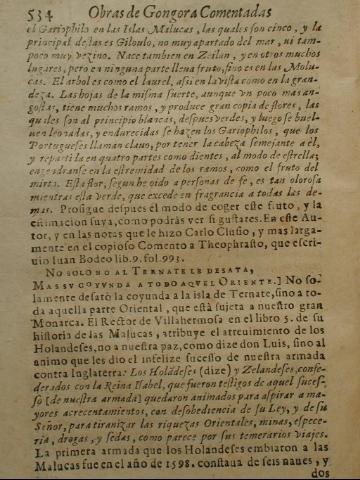 534 Obras de Gongora Comentadas
el Gariophilo en las Islas Malucas, las quales son cinco, y la
principal dellas es Giloulo, no muy apartado del mar, ni tam-
poco muy vezino. Nace tambien en Zeilan, y en otros muchos
lugares, pero en ninguna parte lleua fruto, sino es en las Molu-
cas. El arbol es como el laurel, assi en la vista como en la gran-
deza. Las hojas de la misma suerte, aunque vn poco mas an-
gostas, tiene muchos ramos, y produce gran copia de flores, las
quales son al principio blancas, despues verdes, y luego se buel-
uen leonadas, y endurecidas se hazen los Gariophilos, que los
Portugueses llaman clauo, por tener la cabeza semejante a èl,
y repartida en quatro partes como dientes, al modo de estrella;
engendranse en la estremidad de los ramos, como el fruto del
mirto. Esta flor, segun he oido a personas de fe, es tan olorosa
mientras està verde, que excede en fragrancia a todas las de-
mas. Prosigue despues el modo de coger este fruto, y la
estimacion suya, como podràs ver si gustares. En este Au-
tor, y en las notas que le hizo Carlo Clusio, y mas larga-
mente en el copioso Comento a Theophrasto, que escri-
uio Iuan Bodeo lib. 9. fol. 993.
NO SOLO NO AL TERNATE LE DESATA,
MAS SV COYVNDA A TODO AQVEL ORIENTE.] No so-
lamente desatò la coyunda a la isla de Ternate, sino a to-
da aquella parte Oriental, que està sujeta a nuestro gran
Monarca. El Retor de Villahermosa en el libro 5. de su
historia de las Malucas, atribuye el atreuimiento de los
Holandeses, no a nuestra paz, como dize don Luis, sino al
animo que les dio el infelize sucesso de nuestra armada
contra Inglaterra: Los Holādeses (dize) y Zelandeses, confe-
derados con la Reina Isabel, que fueron testigos de aquel suces-
so (de nuestra armada) quedaron animados para aspirar a ma-
yores acrecentamientos, con desobediencia de su Ley, y de su
Señor, para tiranizar las riquezas Orientales, minas, espece-
ria, drogas, y sedas, como parece por sus temerarios viajes.
La primera armada que los Holandeses embiaron a las
Malucas fue en el año de 1598. constaua de seis naues, y
dos